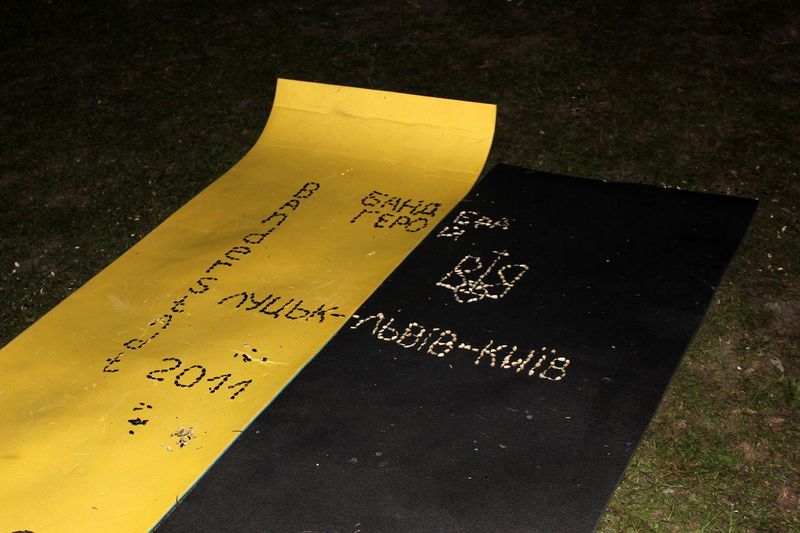 Banderstadt
2011
БАНДЕРА
ГЕРОЙ
ЛУЦЬК-ЛЬВІВ-КИЇВ